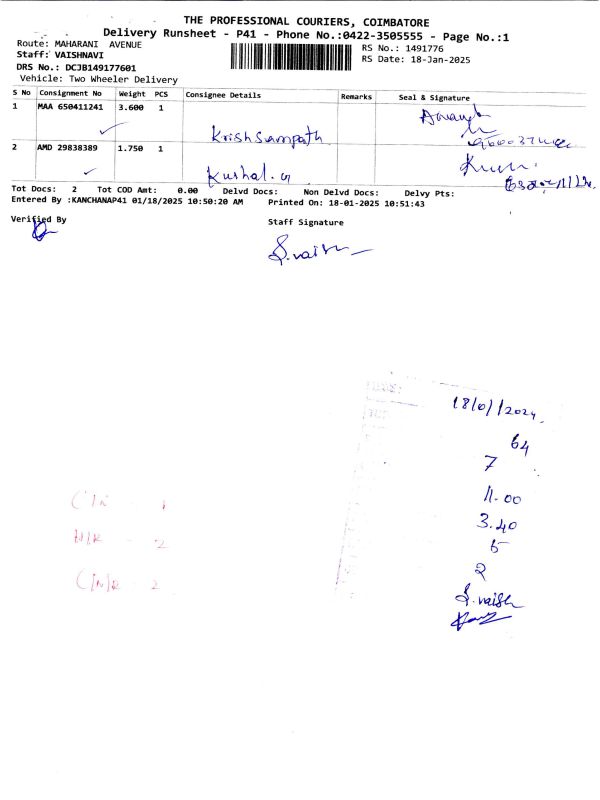 THE PROFESSIONAL COURIERS, COIMBATORE
Delivery Runsheet - P41 - Phone No.:0422-3505555 - Page No.:1
Route: MAHARANI AVENUE
Staff: VAISHNAVI
DRS No.: DCJB149177601
Vehicle: Two Wheeler Delivery
RS No.: 1491776
RS Date: 18-Jan-2025
S No Consignment No Weight PCS Consignee Details Remarks Seal & Signature
1 MAA 650411241 3.600 1
Krish Sampath
2 AMD 29838389 1.750 1
Kushal.
Tot Docs: 2 Tot COD Amt: 0.00 Delvd Docs: Non Delvd Docs: Delvy Pts:
Entered By :KANCHANAP41 01/18/2025 10:50:20 AM Printed On: 18-01-2025 10:51:43
Verified By Staff Signature
S.vaish
64
7
11.00
3.40
5
2
S.vaish
C/N - 1
N/R - 2
C/N/R - 2